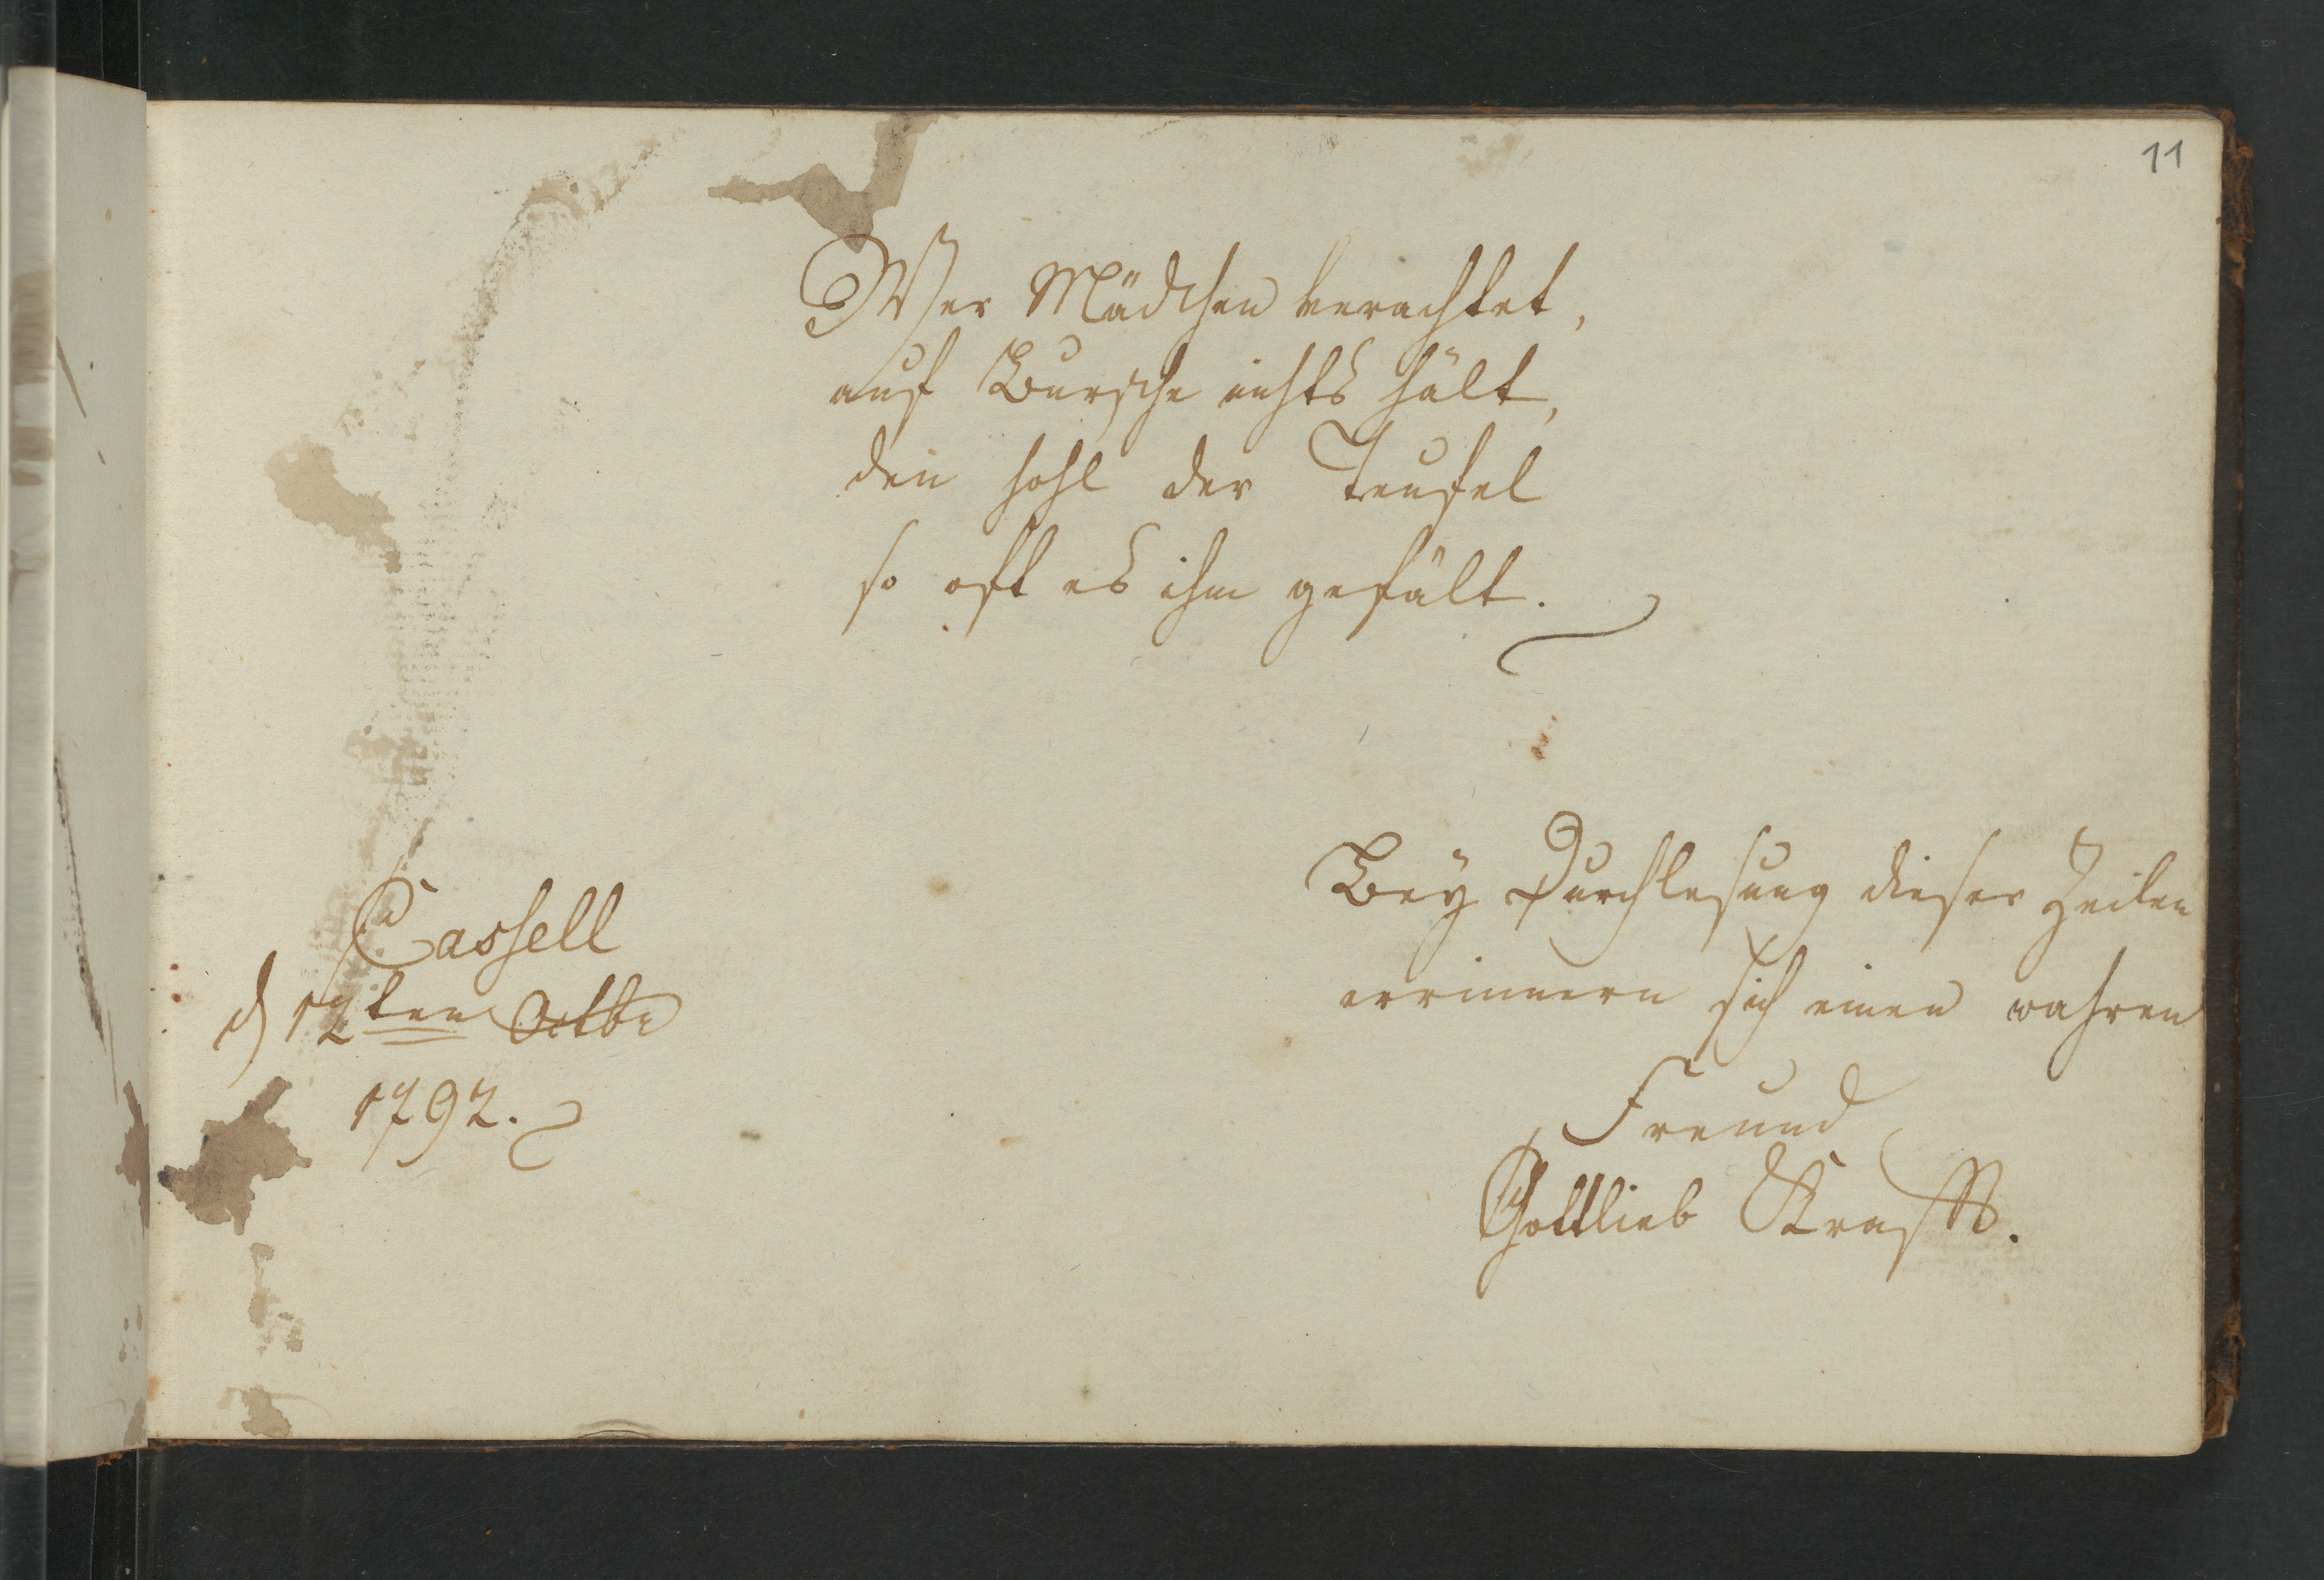 11
Wer Mädchen verachtet,
auf Bursche nichts hält,
den hohl der Teufel
so oft es ihm gefält.
Bey Durchlesung dieser Zeilen
errinnern sich einen wahren
Freund
Gottlieb Krafft.
Cassell
d 12ten Octbr
1792.